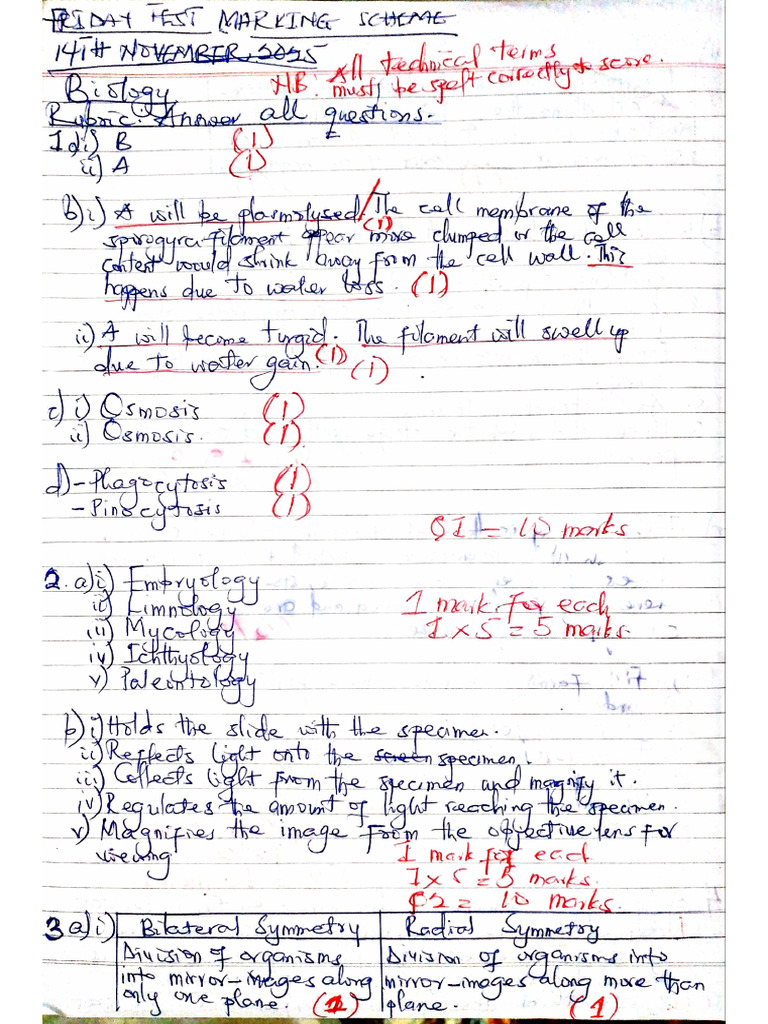 FRIDAY TEST MARKING SCHEME
14TH NOVEMBER, 2025
NB: All technical terms
must be spelt correctly to score.
Biology
Rubric: Answer all questions.
1a)i) B (1)
ii) A (1)
b)i) A will be plasmolysed/The cell membrane of the (1)
spirogyra filament appear more clumped or the cell
content would shrink away from the cell wall. This
happens due to water loss. (1)
ii) A will become turgid. The filament will swell up
due to water gain. (1) (1)
c) i) Osmosis (1)
ii) Osmosis. (1)
d) - Phagocytosis (1)
- Pinocytosis (1)
Q1 = 10 marks.
2. a)i) Embryology
ii) Limnology
iii) Mycology
iv) Ichthyology
v) Paleontology
1 mark for each
1 x 5 = 5 marks.
b) i) Holds the slide with the specimen.
ii) Reflects light onto the screen specimen.
iii) Collects light from the specimen and magnify it.
iv) Regulates the amount of light reaching the specimen.
v) Magnifies the image from the objective lens for
viewing
1 mark for each
1 x 5 = 5 marks.
Q2 = 10 marks.
3 a) i) Bilateral Symmetry Radial Symmetry
Division of organisms Division of organisms into
into mirror-images along mirror-images along more than
only one plane. (1) plane. (1)